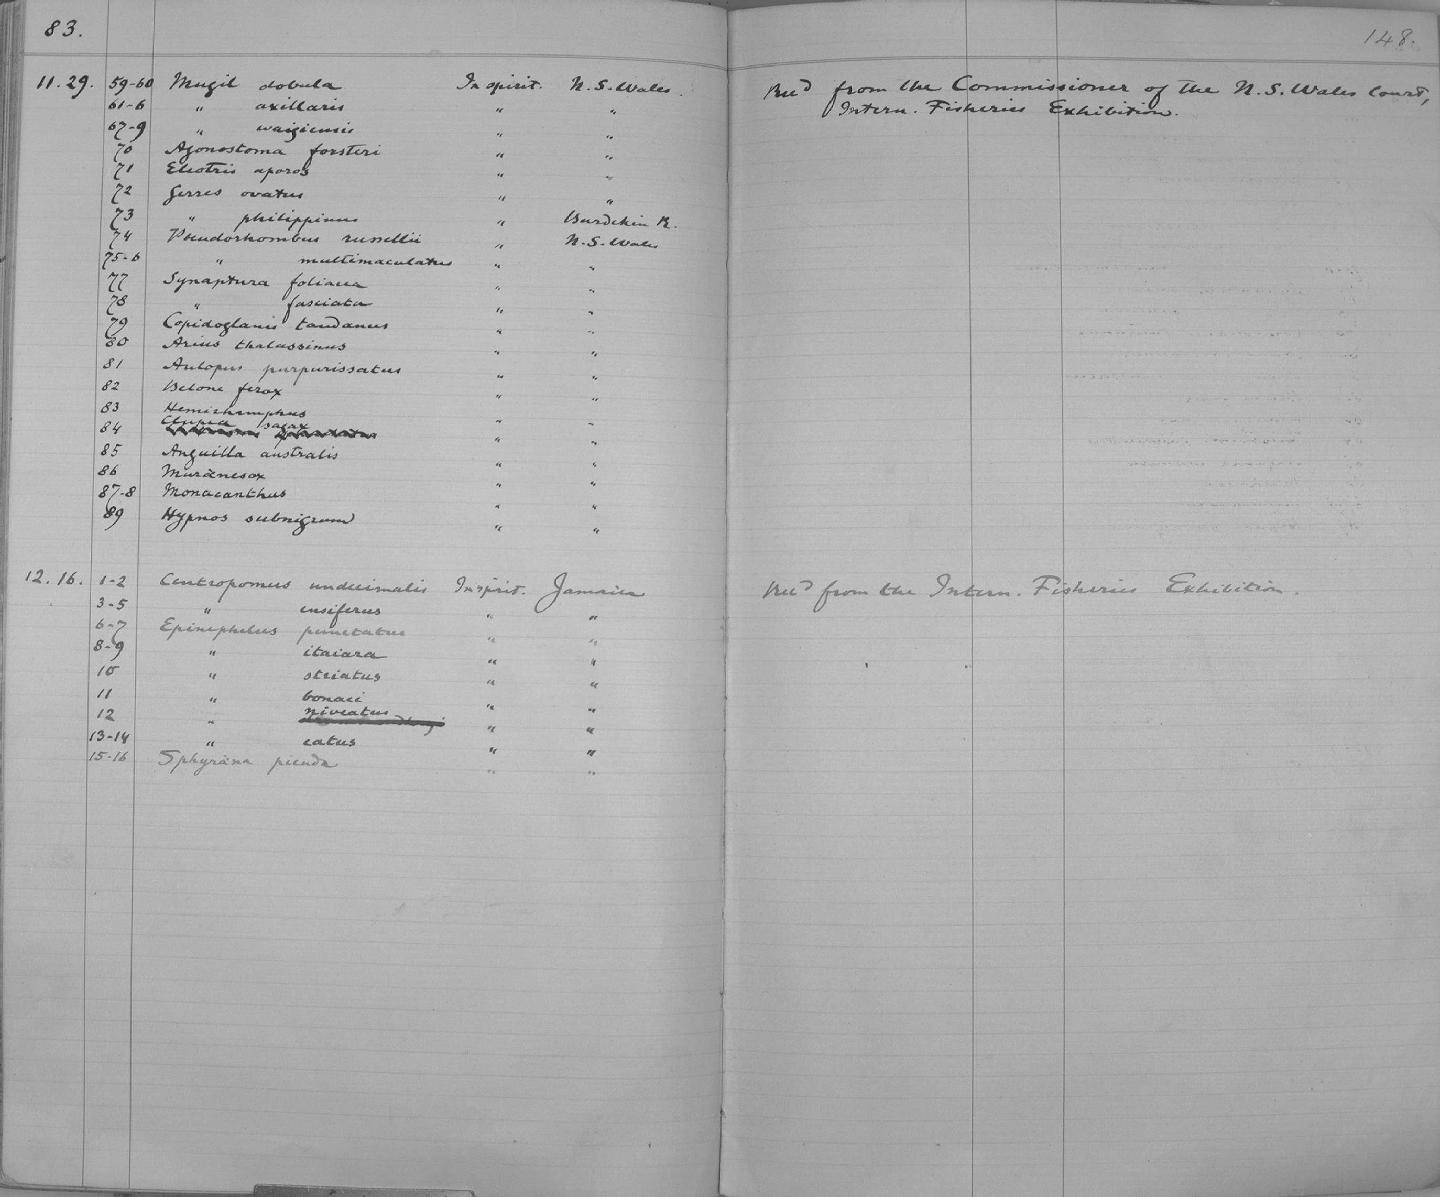 83.
148.
11.29. 59-60 Mugil dobula In spirit. N.S. Wales. Recd from the Commissioner of the N.S. Wales Court,
61-6 " axillaris " " Intern. Fisheries Exhibition.
67-9 " waigiensis " "
70 Agonostoma forsteri " "
71 Eleotris aporos " "
72 Gerres ovatus " "
73 " philippinus " Burdekin R.
74 Pseudorhombus russellii " N.S. Wales
75-6 " multimaculatus " "
77 Synaptura foliacea " "
78 " fasciata " "
79 Copidoglanis tandanus " "
80 Arius thalassinus " "
81 Aulopus purpurissatus " "
82 Belone ferox " "
83 Hemirhamphus " "
84 Clupea sagax " "
85 Anguilla australis " "
86 Murænesox " "
87-8 Monacanthus " "
89 Hypnos subnigrum " "
12.16. 1-2 Centropomus undecimalis In spirit. Jamaica Recd from the Intern. Fisheries Exhibition.
3-5 " ensiferus " "
6-7 Epinephelus punctatus " "
8-9 " itaiara " "
10 " striatus " "
11 " bonaci " "
12 " niveatus " "
13-14 " catus " "
15-16 Sphyræna picuda " "